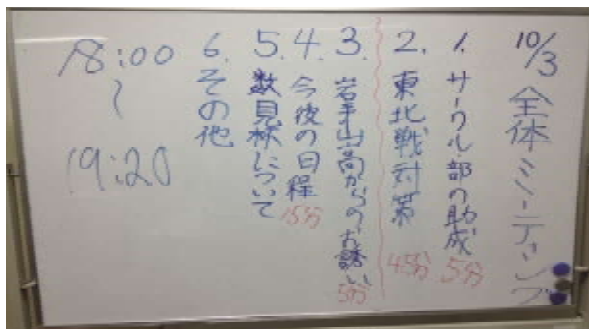 10/3 全体ミーティング
1. サークル部の助成 5分
2. 東北戦対策 45分
3. 岩手山高からのお誘い 5分
4. 今後の日程 15分
5. 数見杯について
6. その他
18:00
~
19:20